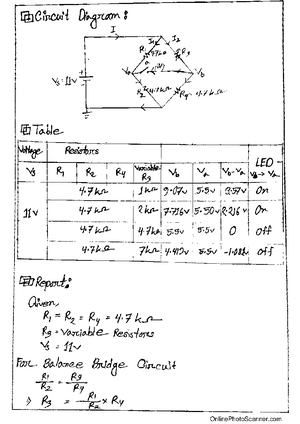 Circuit Diagram:
I
I₁ I₂
R₁ 4.7kΩ R₃
Va Vb
Vs = 11v
R₂ 4.7kΩ R₄ 4.7kΩ
Table
Voltage Resistors LED
Vs R₁ R₂ R₄ Variable R₃ Vb Va Vb-Va Vb → Va
11v 4.7kΩ 1kΩ 9.07v 5.5v 3.57v On
4.7kΩ 2kΩ 7.716v 5.50v 2.216v On
4.7kΩ 4.7kΩ 5.5v 5.5v 0 off
4.7kΩ 7kΩ 4.419v 5.5v off
Report:
Given
R₁ = R₂ = R₄ = 4.7 kΩ
R₃ = Variable Resistors
Vs = 11v
For Balance Bridge Circuit
R₁/R₂ = R₃/R₄
⇒ R₃ = R₁/R₂ × R₄
OnlinePhotoScanner.com